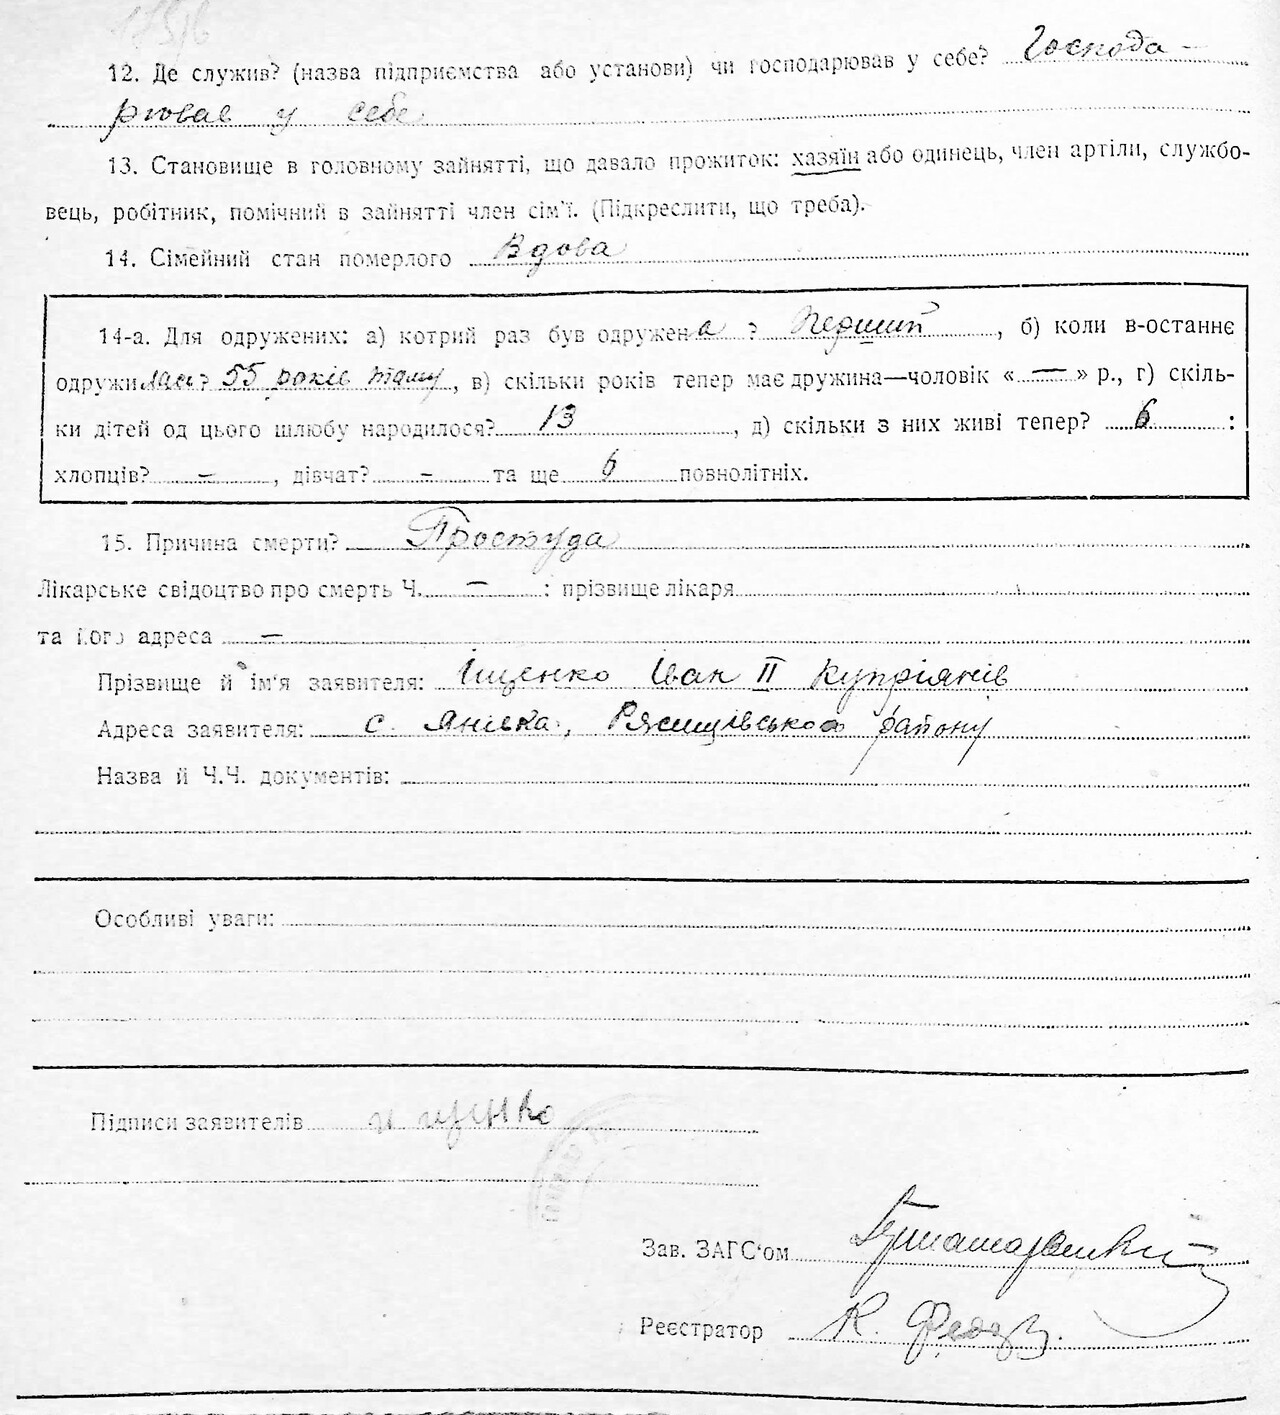 12. Де служив? (назва підприємства або установи) чи господарював у себе? Господа-
рював у себе
13. Становище в головному зайнятті, що давало прожиток: хазяїн або одинець, член артіли, службо-
вець, робітник, помічний в зайнятті член сім'ї. (Підкреслити, що треба).
14. Сімейний стан померлого Вдова
14-а. Для одружених: а) котрий раз був одружена? Перший, б) коли в-останнє
одружилась? 55 років тому, в) скільки років тепер має дружина—чоловік «—» р., г) скіль-
ки дітей од цього шлюбу народилося? 13, д) скільки з них живі тепер? 6:
хлопців? –, дівчат? – та ще 6 повнолітніх.
15. Причина смерти? Простуда
Лікарське свідоцтво про смерть Ч. –: прізвище лікаря
та його адреса –
Прізвище й ім'я заявителя: Іщенко Іван II Купріянів
Адреса заявителя: с. Янівка, Ржищівського району
Назва й Ч.Ч. документів:
Особливі уваги:
Підписи заявителів и ищенко
Зав. ЗАГС'ом
Реєстратор К.